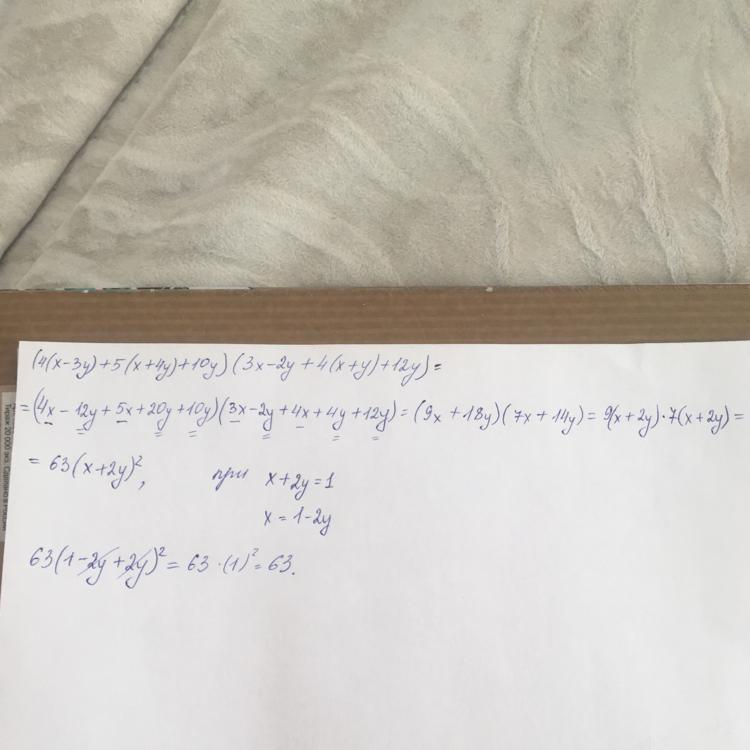 (4(x-3y)+5(x+4y)+10y)(3x-2y+4(x+y)+12y)=
=(4x-12y+5x+20y+10y)(3x-2y+4x+4y+12y)=(9x+18y)(7x+14y)=9(x+2y)·7(x+2y)=
=63(x+2y)², при x+2y=1
x=1-2y
63(1-2y+2y)²=63·(1)²=63.
Тираж 20 000 экз.